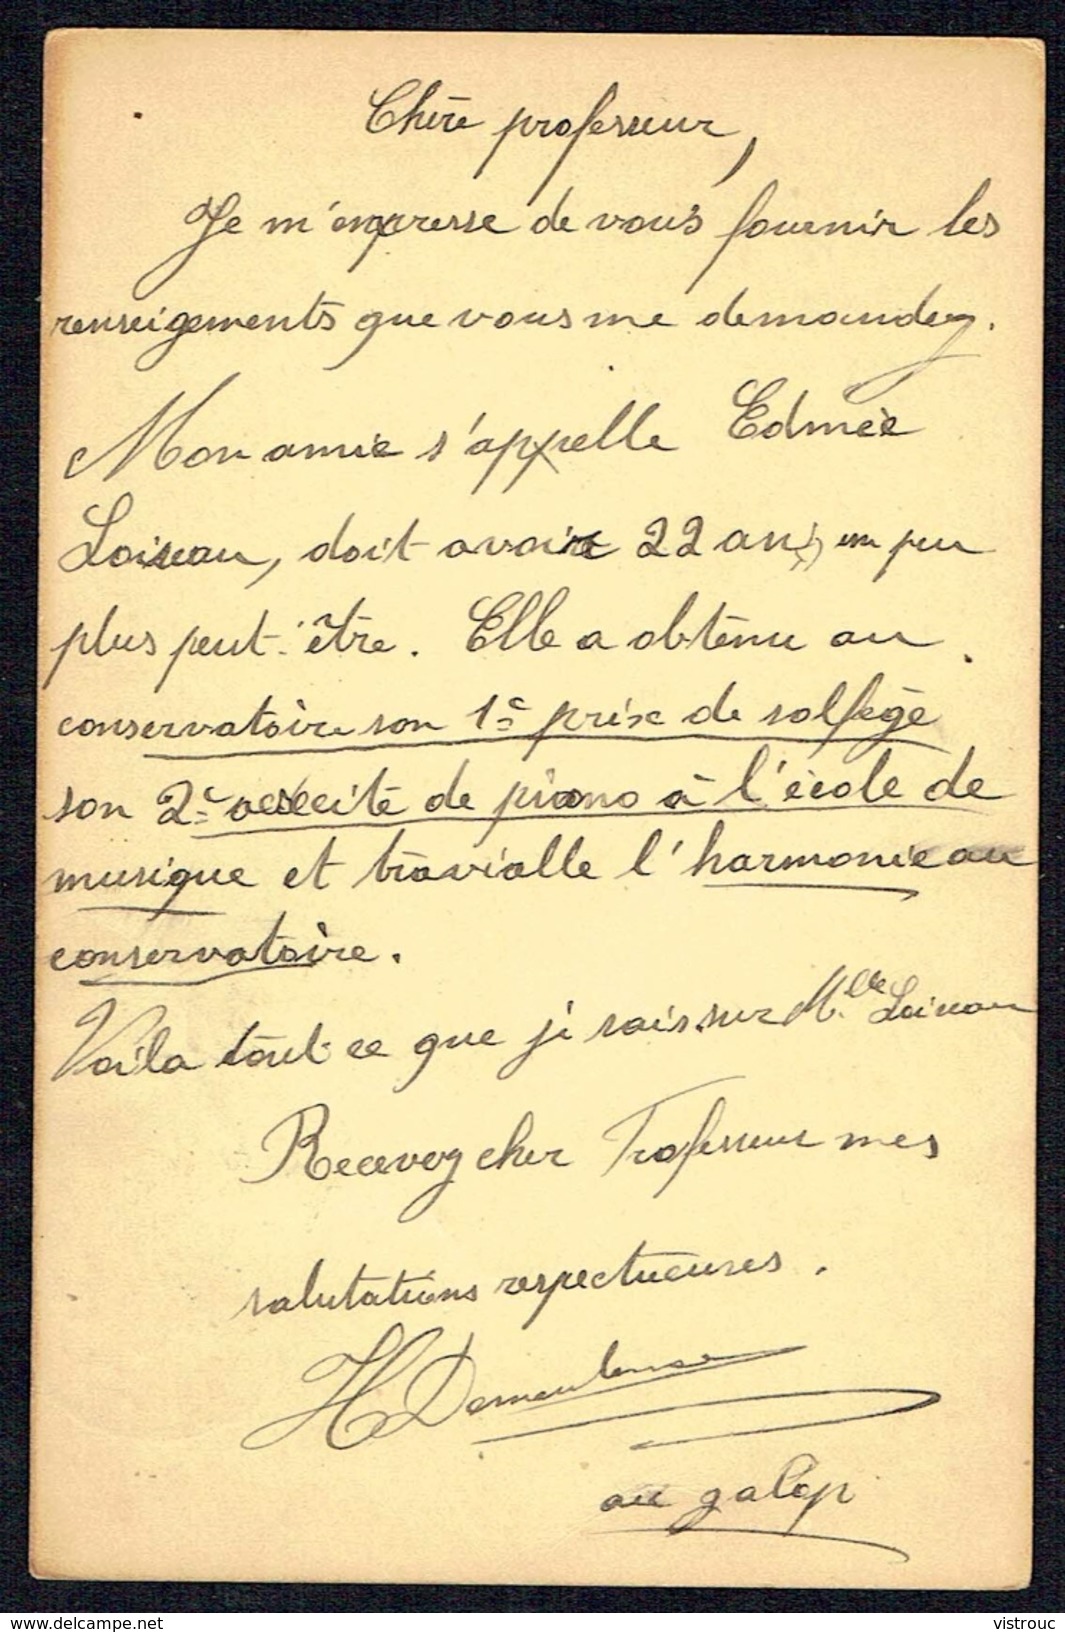 Chère professeur,
Je m'empresse de vous fournir les
renseigements que vous me demandez.
Mon amie s'appelle Edmée
Loiseau, doit avoir 22 ans, un peu
plus peut-être. Elle a obtenu au
conservatoire son 1e prix de solfège
son 2e de piano à l'école de
musique et travialle l'harmonie au
conservatoire.
Voila tout ce que je sais sur Mlle Loiseau
Recevez cher Professeur mes
salutations respectueuses.
H
au galop
delcampe.net
vistrouc